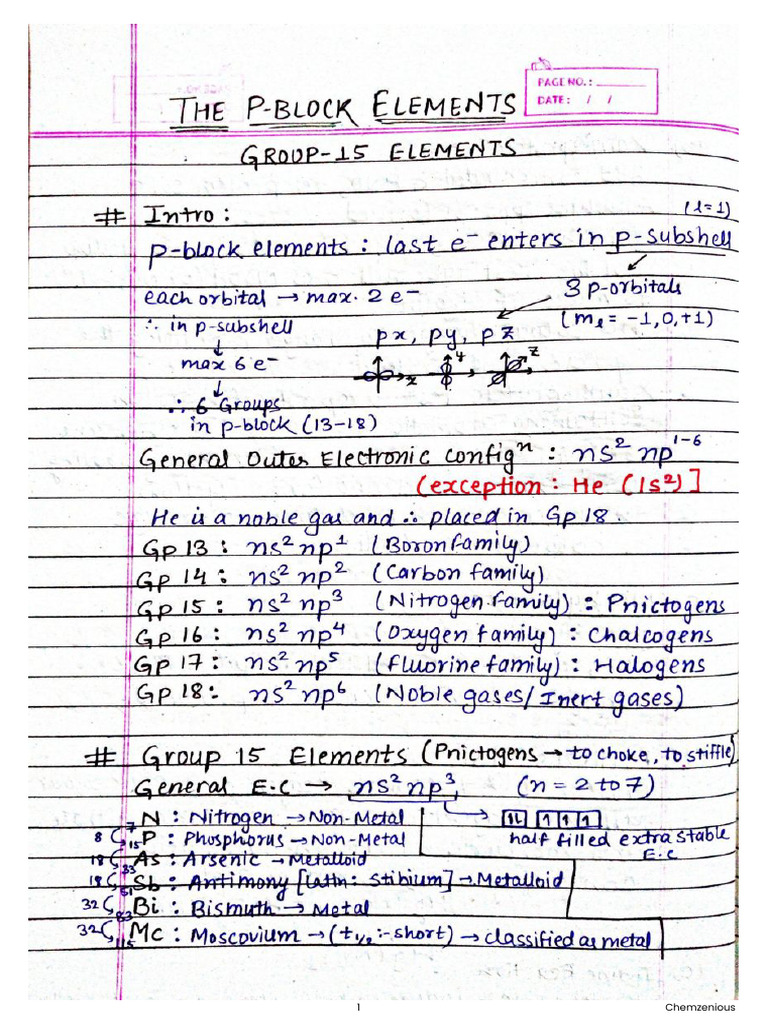 PAGE NO.:
DATE: / /
THE P-BLOCK ELEMENTS
GROUP-15 ELEMENTS
# Intro:
(l=1)
p-block elements : last e⁻ enters in p-subshell
each orbital → max. 2 e⁻
3 p-orbitals
∴ in p-subshell
(mₗ = -1, 0, +1)
px, py, pz
max 6 e⁻
x y z
∴ 6 Groups
in p-block (13-18)
General Outer Electronic configⁿ : ns² np¹⁻⁶
(exception: He (1s²)]
He is a noble gas and ∴ placed in Gp 18.
Gp 13 : ns² np¹ (Boron family)
Gp 14 : ns² np² (Carbon family)
Gp 15 : ns² np³ (Nitrogen family) : Pnictogens
Gp 16 : ns² np⁴ (Oxygen family) : Chalcogens
Gp 17 : ns² np⁵ (Fluorine family) : Halogens
Gp 18: ns² np⁶ (Noble gases/Inert gases)
# Group 15 Elements (Pnictogens → to choke, to stiffle)
General E.C → ns² np³, (n = 2 to 7)
7 N : Nitrogen → Non-Metal
8 15 P : Phosphorus → Non-Metal
half filled extra stable
E.C
18 33 As : Arsenic → Metalloid
18 51 Sb : Antimony [Latn: Stibium] → Metalloid
32 83 Bi : Bismuth → Metal
32 115 Mc : Moscovium → (t₁/₂ :- short) → classified as metal
1
Chemzenious